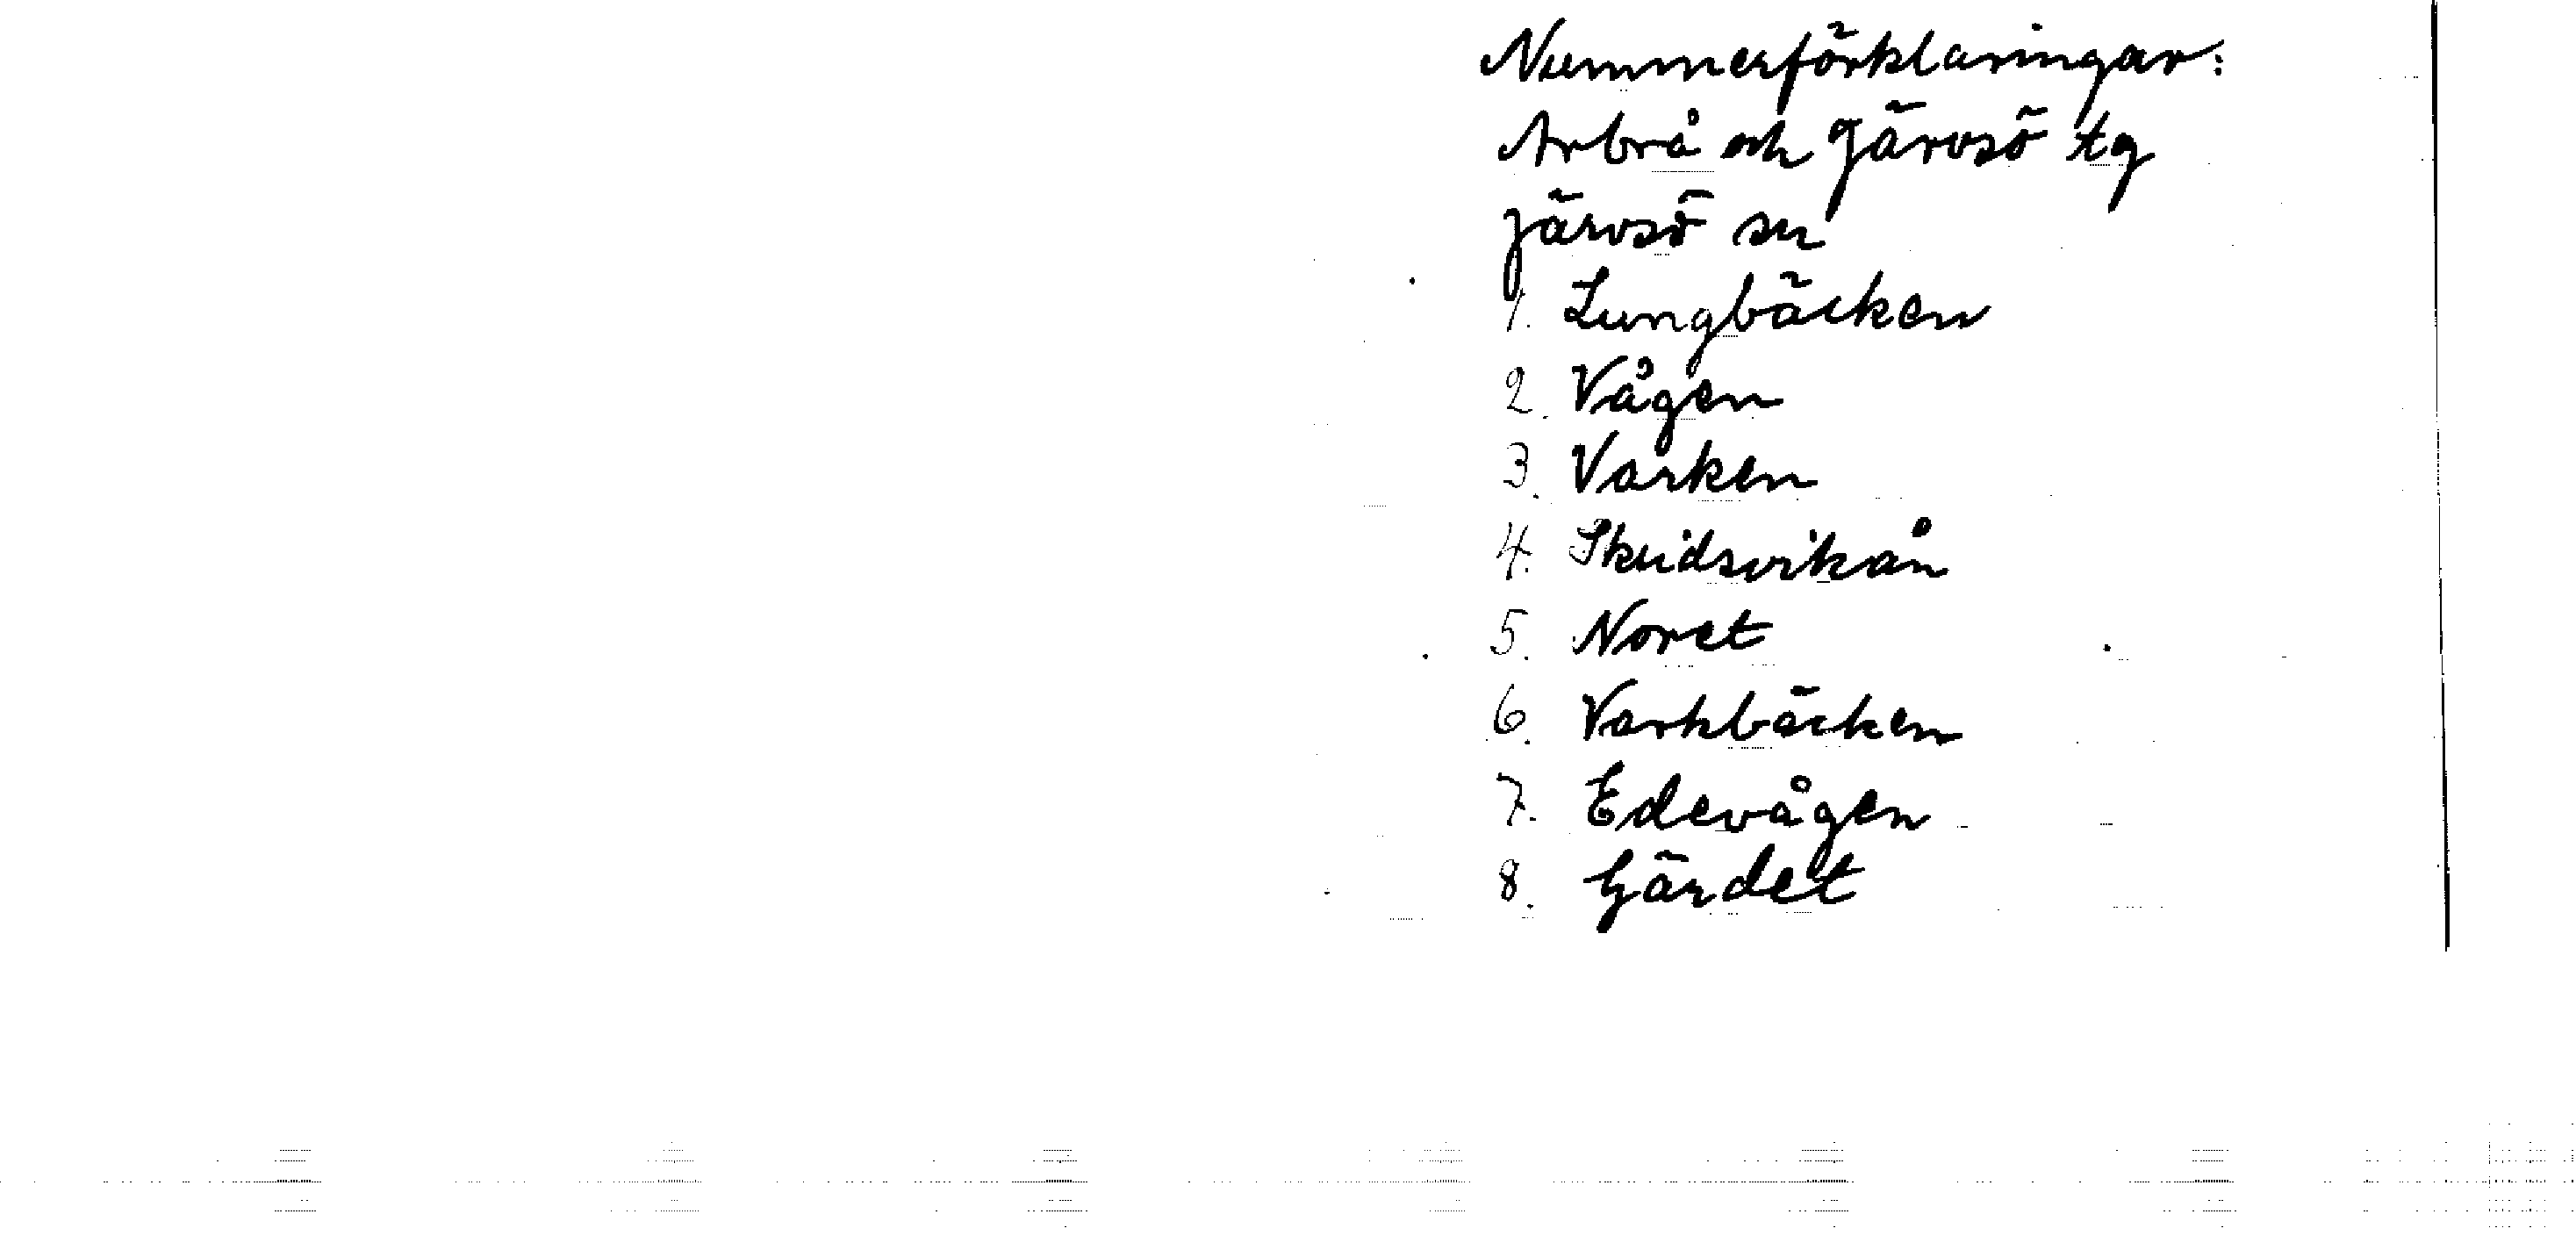 Nummerförklaringar:
Arbrå och Järvsö tg
Järvsö sn
1. Lungbäcken
2. Vågen
3. Varken
4. Skidsvikån
5. Noret
6. Varkbäcken
7. Edevågen
8. Gärdet